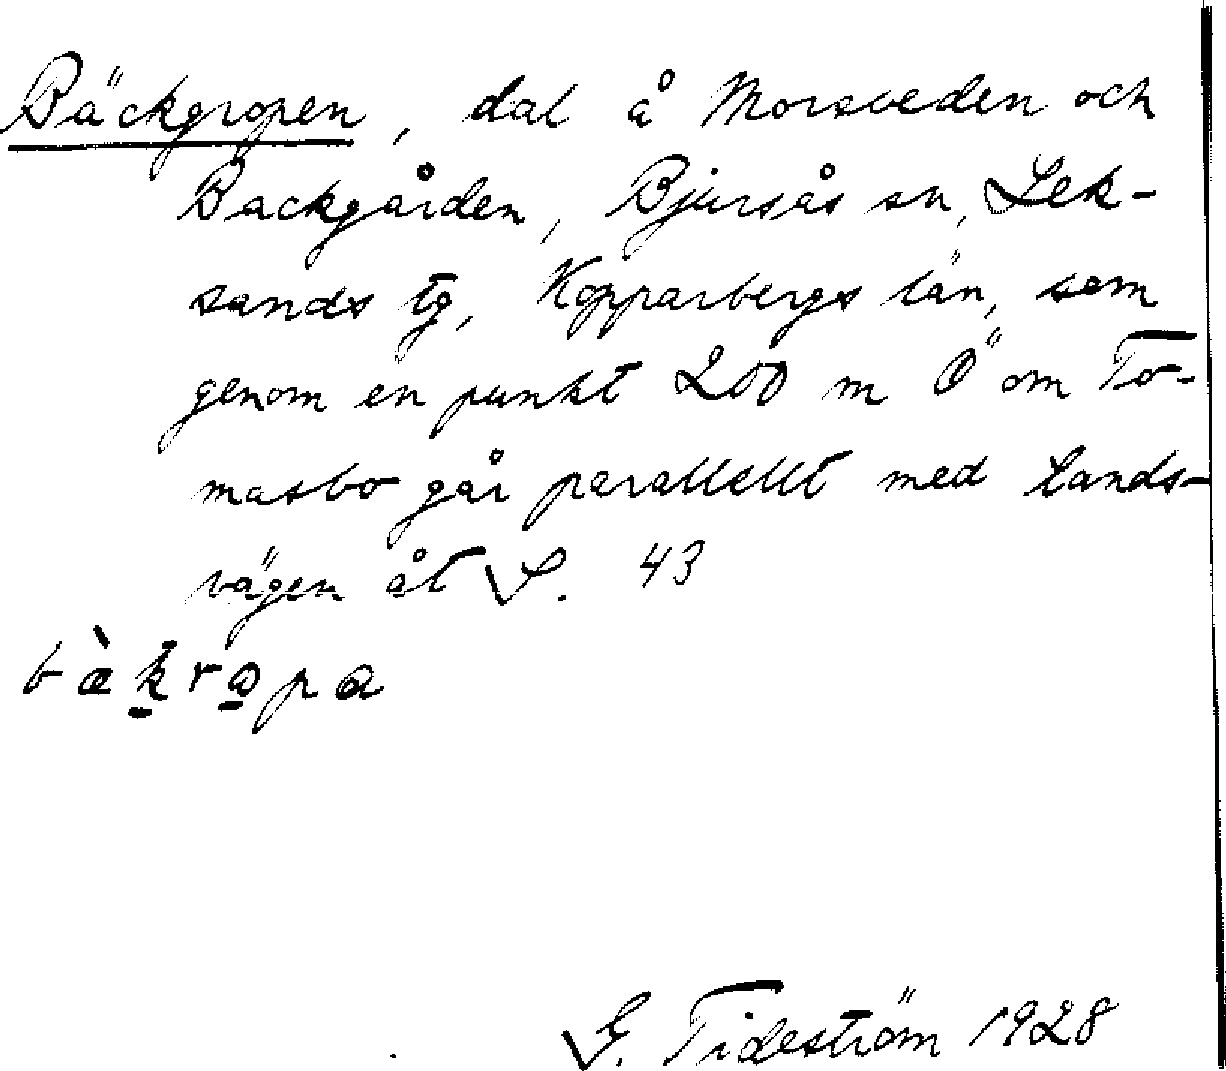 Bäckgropen, dal å Morsveden och
Backgården, Bjursås sn, Lek-
sands tg, Kopparbergs län, som
genom en punkt 200 m Ö om To-
masbo går parallellt med lands-
vägen åt S. 43
bàkropa
G. Tideström 1928